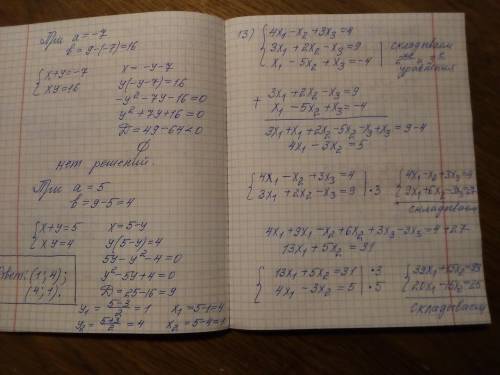 При a = -7
b = 9-(-7) = 16
{x+y=-7
xy=16
x = -y-7
y(-y-7)=16
-y²-7y-16=0
y²+7y+16=0
D=49-64<0
∅
нет решений.
При a = 5
b = 9-5=4
{x+y=5
xy=4
x=5-y
y(5-y)=4
5y-y²-4=0
y²-5y+4=0
D=25-16=9
y₁ = (5-3)/2 = 1 x₁=5-1=4
y₂ = (5+3)/2 = 4 x₂=5-4=1
Ответ: (1; 4);
(4; 1).
13) {4x₁-x₂+3x₃=4
3x₁+2x₂-x₃=9
x₁-5x₂+x₃=-4
складываем
уравнения
+ 3x₁+2x₂-x₃=9
x₁-5x₂+x₃=-4
3x₁+x₁+2x₂-5x₂-x₃+x₃=9-4
4x₁-3x₂=5
{4x₁-x₂+3x₃=4
3x₁+2x₂-x₃=9 |·3
{4x₁-x₂+3x₃=4
9x₁+6x₂-3x₃=27
складываем
4x₁+9x₁-x₂+6x₂+3x₃-3x₃=4+27
13x₁+5x₂=31
{13x₁+5x₂=31 |·3
4x₁-3x₂=5 |·5
{39x₁+15x₂=93
20x₁-15x₂=25
складываем